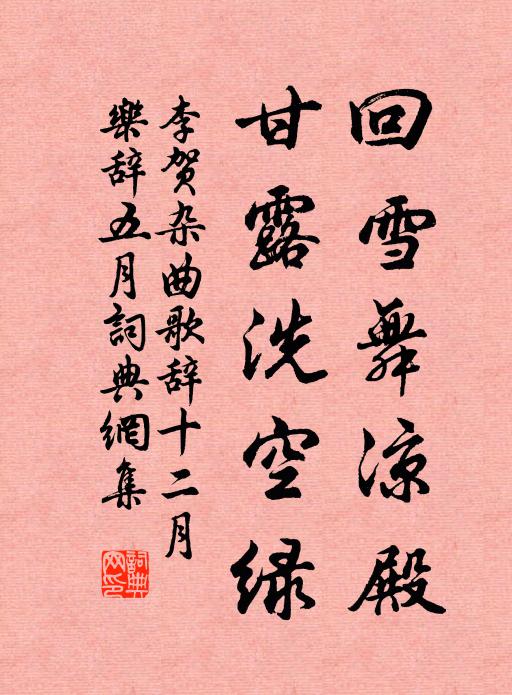 回雪舞涼殿
甘露洗空緑
李贺杂曲歌辞十二月
樂辞五月詞典網集
詞典
网印